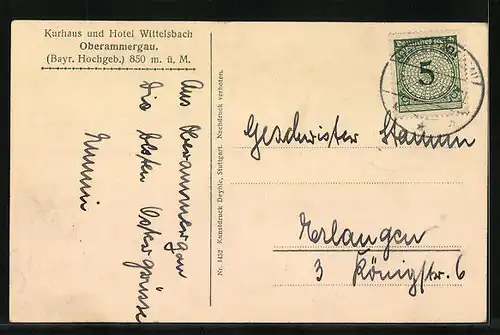 Kurhaus und Hotel Wittelsbach
Oberammergau.
(Bayr. Hochgeb.) 850 m. ü. M.
Aus Oberammergau
die besten Ostergrüsse
Nr. 1452 Kunstdruck Deyhle, Stuttgart. Nachdruck verboten.
5
Geschwister
Erlangen
3 Königstr. 6